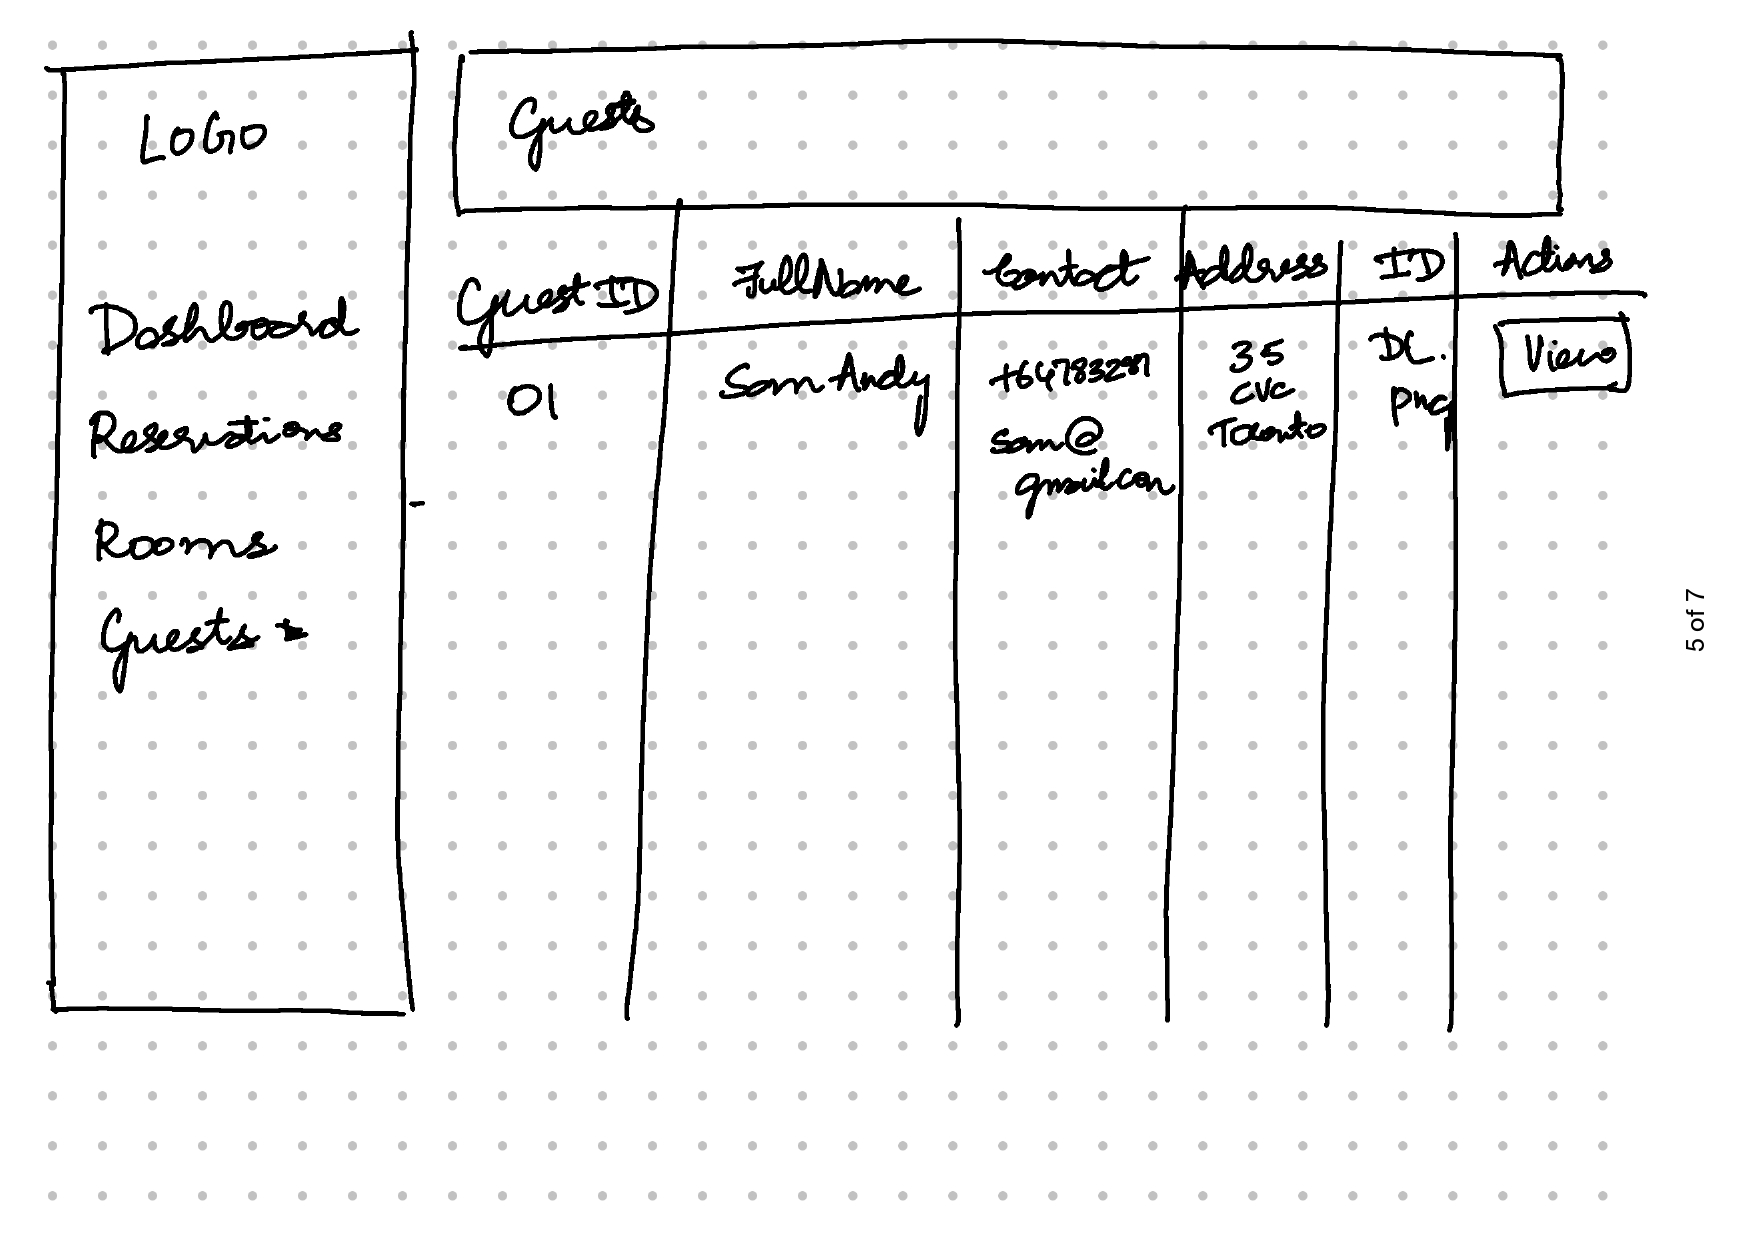 LOGO
Dashboard
Reservations
Rooms
Guests
Guests
Guest ID
Full Name
Contact
Address
ID
Actions
01
Sam Andy
sam@
gmail.com
35
CVC
Toronto
DL.
png
View
5 of 7